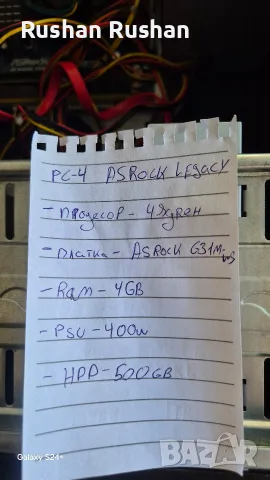 Rushan Rushan
PC-4 ASROCK LEGACY
- процесор - 4 ядрен
- платка - ASROCK G31M-
- RAM - 4GB
- PSU - 400W
- HDD - 500GB
Galaxy S24+
BAZAR